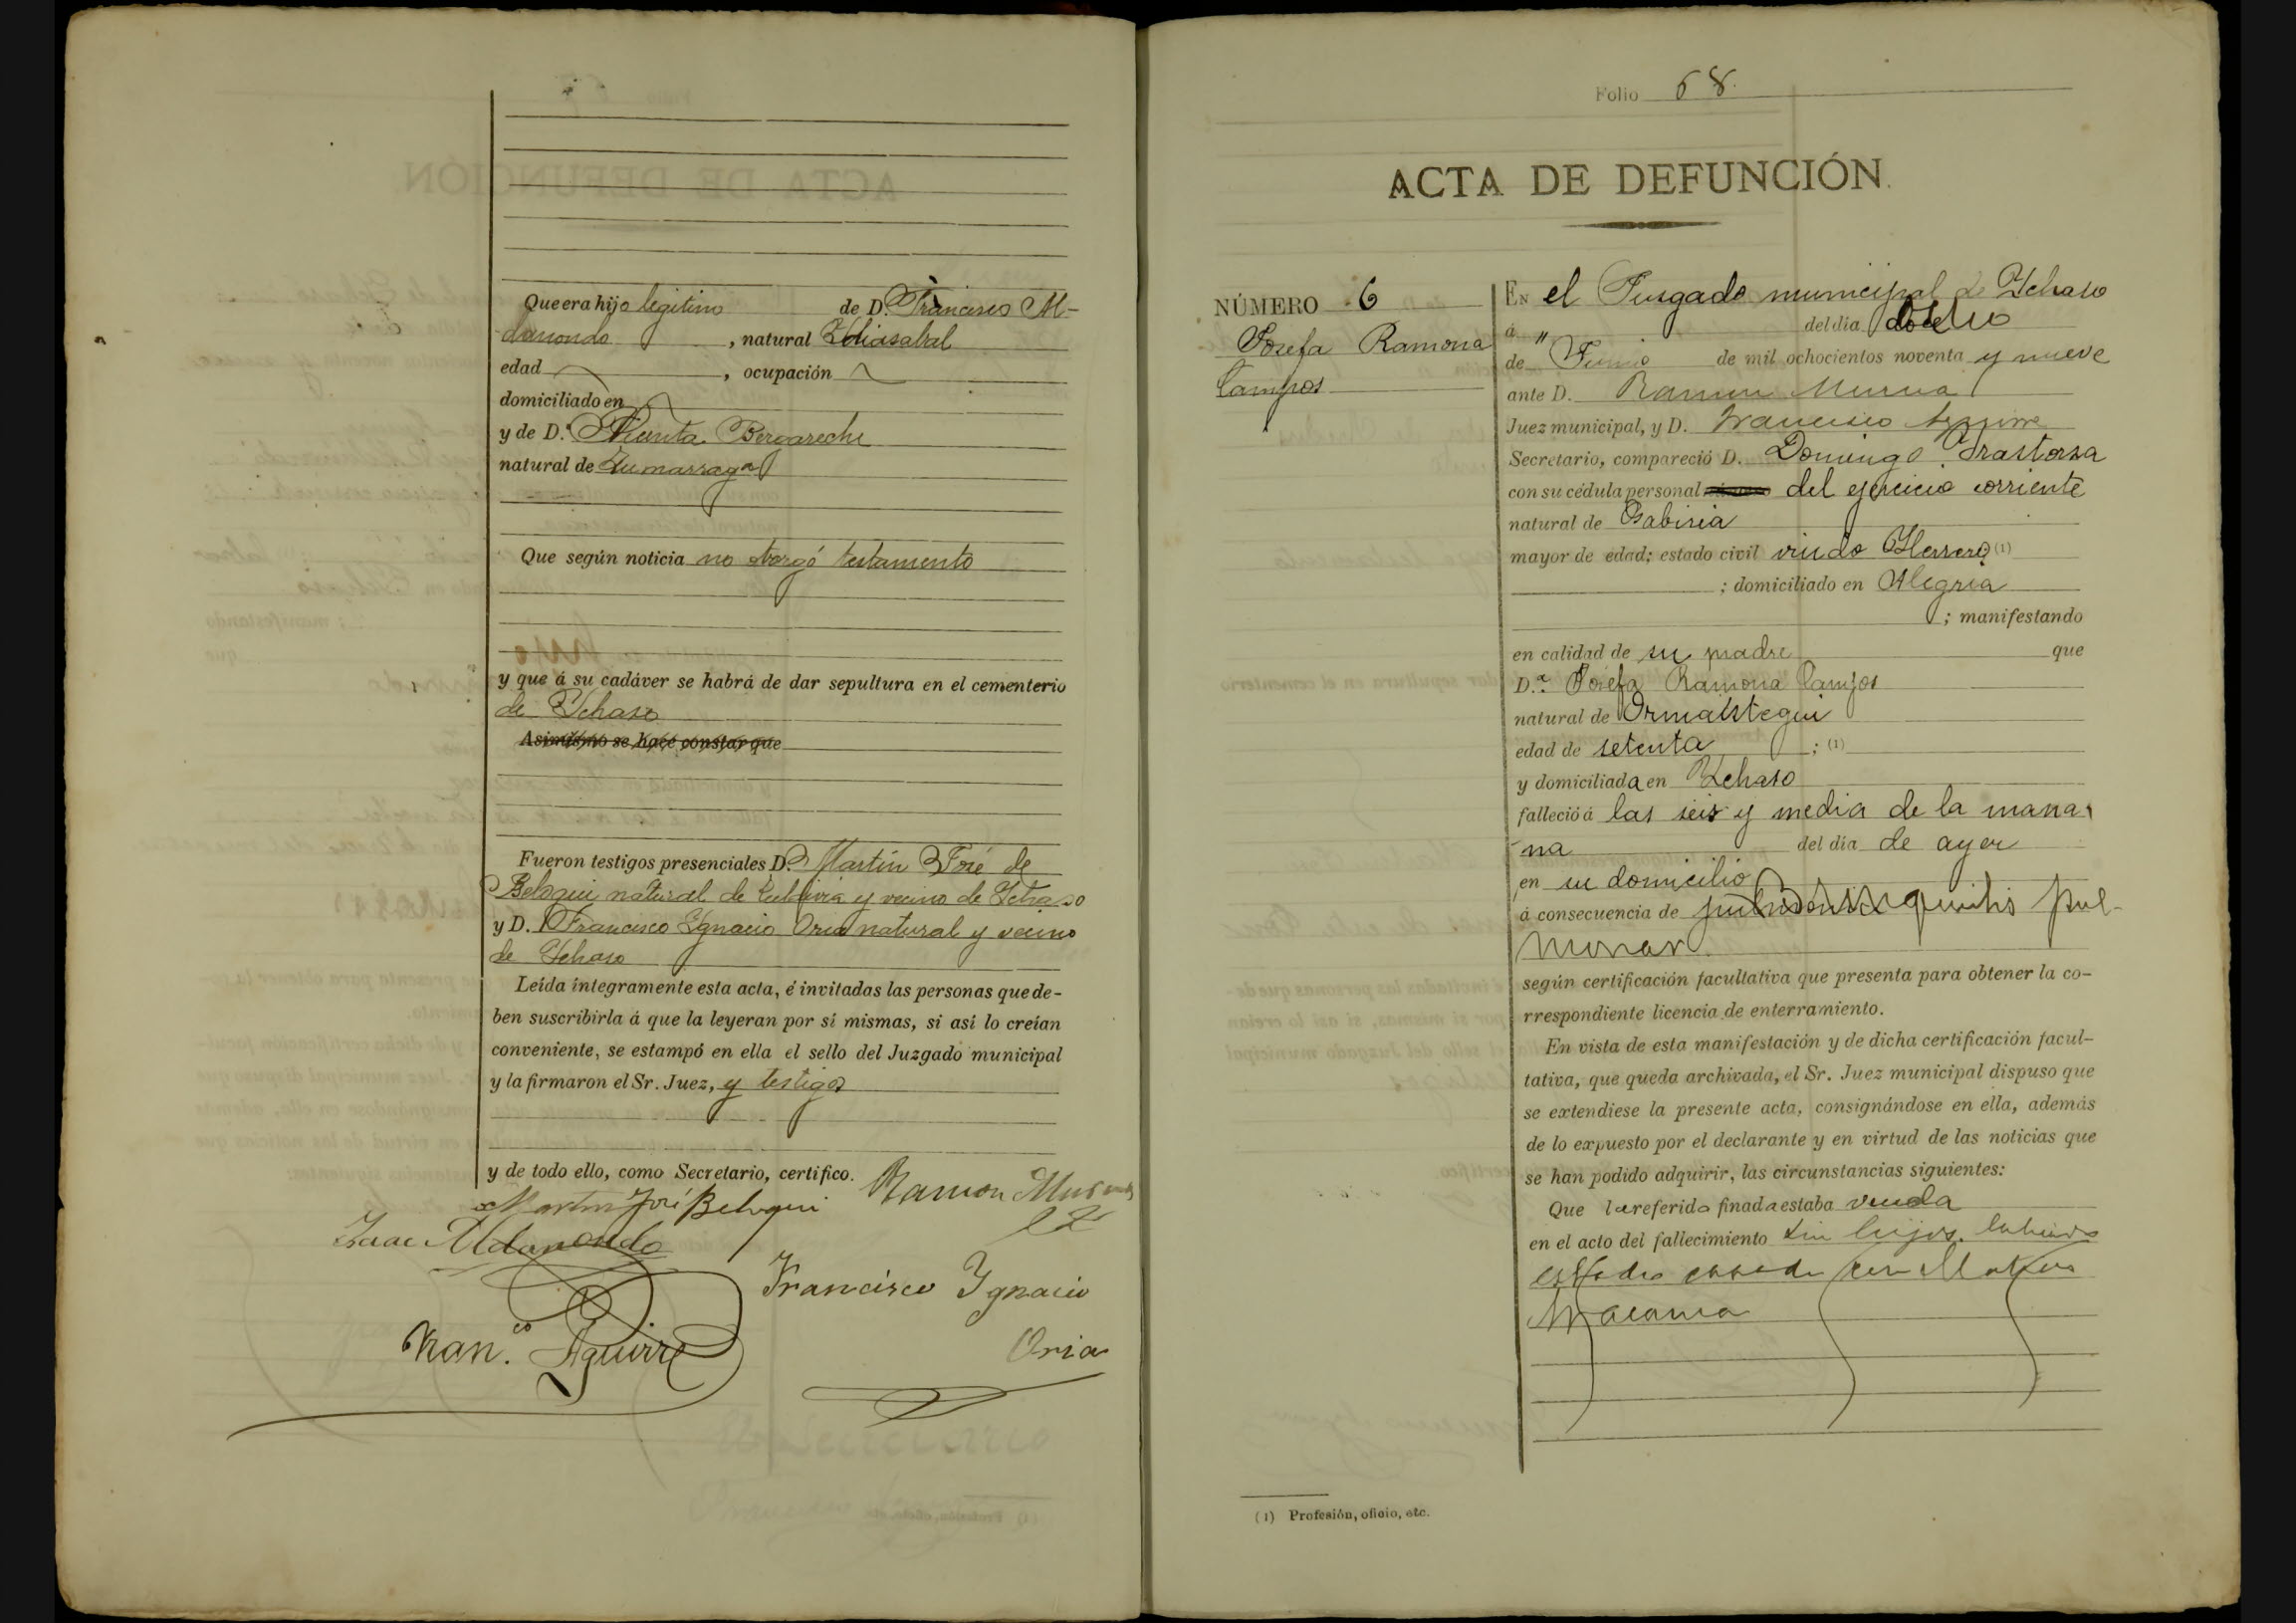 Que era hijo legitimo de D. Francisco Al-
damondo, natural Ydiasabal
edad, ocupación
domiciliado en
y de D.ª Vicenta Bergareche
natural de Zumarraga
Que según noticia no otorgó testamento
y que á su cadáver se habrá de dar sepultura en el cementerio
de Ychaso
Asimismo se hace constar que
Fueron testigos presenciales D. Martin José de
Beloqui natural de y vecino de Ychaso
y D. Francisco Ygnacio Oria natural y vecino
de Ychaso
Leída íntegramente esta acta, é invitadas las personas que de-
ben suscribirla á que la leyeran por sí mismas, si así lo creían
conveniente, se estampó en ella el sello del Juzgado municipal
y la firmaron el Sr. Juez, y testigos
y de todo ello, como Secretario, certifico.
Ramon Murua
Martin José Beloqui
Isaac Aldamondo
Francisco Ygnacio
Oria
Fran.co Aguirre
Folio 68.
ACTA DE DEFUNCIÓN.
NÚMERO 6
Josefa Ramona
Campos
EN el Jusgado municipal de Ychaso
á " del dia
de Junio de mil ochocientos noventa y nueve
ante D. Ramon Murua
Juez municipal, y D. Francisco Aguirre
Secretario, compareció D. Domingo Trastorza
con su cédula personal del ejercicio corriente
natural de Gabiria
mayor de edad; estado civil viudo Herrero (1)
; domiciliado en Alegria
; manifestando
en calidad de su madre que
D.ª Josefa Ramona Campos
natural de Ormaistegui
edad de setenta ; (1)
y domiciliada en Ychaso
falleció á las seis y media de la maña-
na del día de ayer
en su domicilio
á consecuencia de pul-
monar
según certificación facultativa que presenta para obtener la co-
rrespondiente licencia de enterramiento.
En vista de esta manifestación y de dicha certificación facul-
tativa, que queda archivada, el Sr. Juez municipal dispuso que
se extendiese la presente acta, consignándose en ella, además
de lo expuesto por el declarante y en virtud de las noticias que
se han podido adquirir, las circunstancias siguientes:
Que la referida finada estaba viuda
en el acto del fallecimiento sin hijos. habiendo
estado casada con
(1) Profesión, oficio, etc.